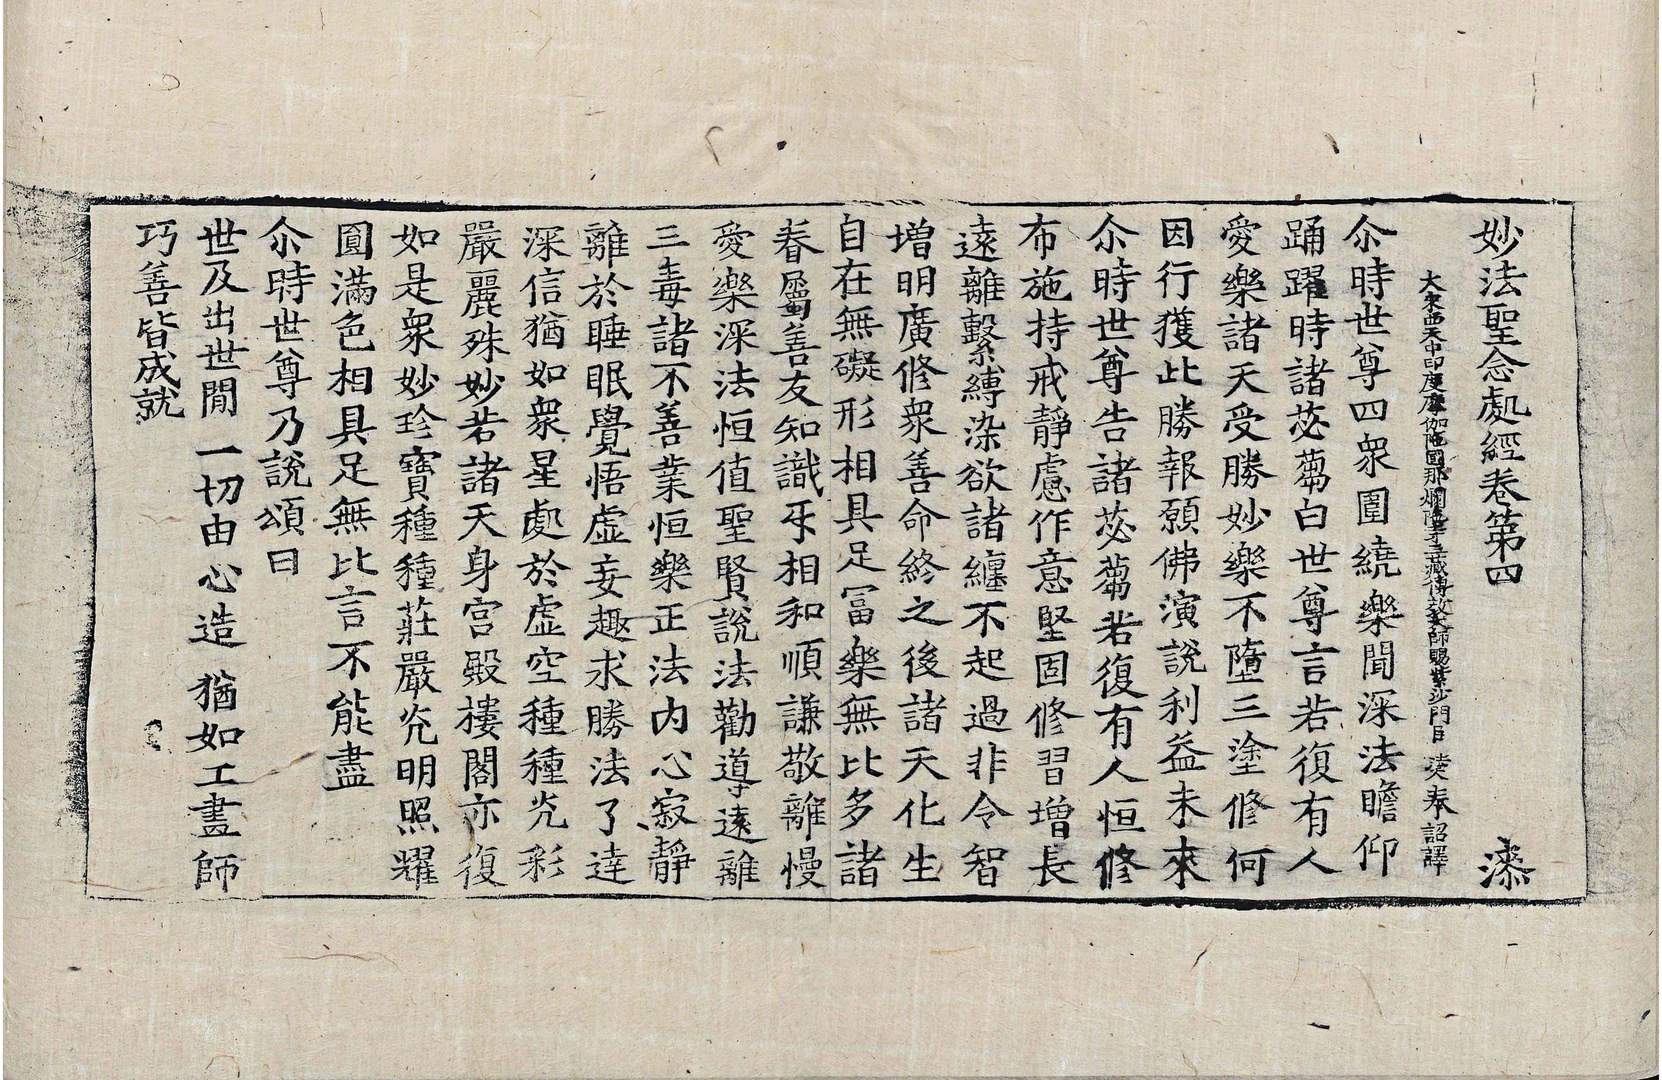 妙法聖念處經卷第四 漆
大宋西天中印度摩伽陁國那爛陁寺三藏傳教大師賜紫沙門臣 法天奉 詔譯
尒時世尊四衆圍繞樂聞深法瞻仰
踊躍時諸苾蒭白世尊言若復有人
愛樂諸天受勝妙樂不墮三塗修何
因行獲此勝報願佛演說利益未來
尒時世尊告諸苾蒭若復有人恒修
布施持戒靜慮作意堅固修習增長
遠離繫縛染欲諸纏不起過非令智
增明廣修衆善命終之後諸天化生
自在無礙形相具足冨樂無比多諸
眷屬善友知識互相和順謙敬離慢
愛樂深法恒值聖賢說法勸導遠離
三毒諸不善業恒樂正法内心寂靜
離於睡眠覺悟虛妄趣求勝法了達
深信猶如衆星處於虛空種種光彩
嚴麗殊妙若諸天身宮殿樓閣亦復
如是衆妙珍寶種種莊嚴光明照耀
圓滿色相具足無比言不能盡
尒時世尊乃說頌曰
世及出世間 一切由心造 猶如工畫師
巧善皆成就